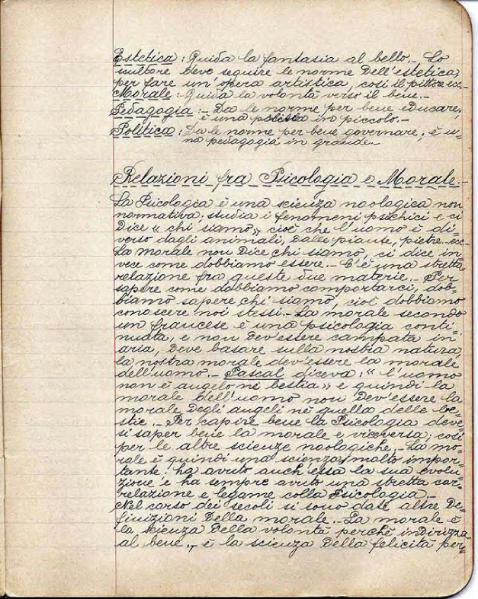 Estetica: Guida la fantasia al bello. - Lo
scultore deve seguire le norme dell'estetica,
per fare un'opera artistica, così il pittore ecc.
Morale: Guida la volontà verso il bene.
Pedagogia: - Dà le norme per bene educare,
è una politica in piccolo. -
Politica: Dà le norme per bene governare; è u-
na pedagogia in grande. -
Relazioni fra Psicologia e Morale. -
La Psicologia è una scienza noologica non
normativa; studia i fenomeni psichici e ci
dice "chi siamo", cioè che l'uomo è di-
verso dagli animali, dalle piante, pietre ecc.
La morale non dice chi siamo, ci dice in-
vece come dobbiamo essere. - C'è una stretta
relazione fra queste due materie. - Per
sapere come dobbiamo comportarci, dob-
biamo sapere chi siamo, cioè dobbiamo
conoscere noi stessi. - La morale secondo
un francese è una psicologia conti-
nuata, e non dev'essere campata in
aria, deve basare sulla nostra natura,
la nostra morale dev'essere la morale
dell'uomo. - Pascal diceva: "l'uomo
non è angelo nè bestia" e quindi la
morale dell'uomo non dev'essere la
morale degli angeli nè quella delle be-
stie. - Per capire bene la Psicologia deve-
si saper bene la morale e viceversa, così
per le altre scienze noologiche. - La mo-
rale è quindi una scienza molto impor-
tante: ha avuto anch'essa la sua evolu-
zione e ha sempre avuto una stretta cor-
relazione e legame colla Psicologia. -
Nel corso dei secoli si sono date altre de-
finizioni della morale. - La morale è
la scienza della volontà perchè indirizza
al bene, - è la scienza della felicità per-